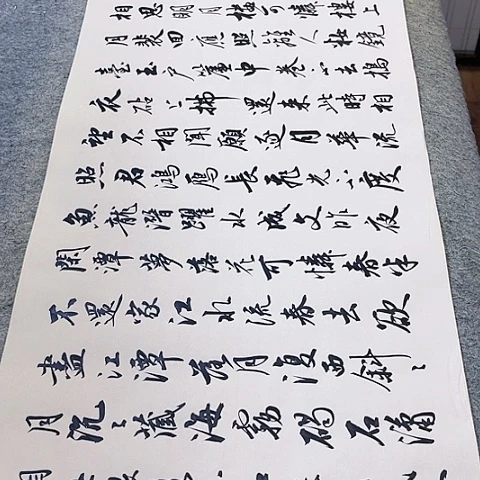 相思明月樓可憐樓上
月裴回應照離人妝鏡
臺玉戶簾中卷不去搗
衣砧上拂還來此時相
望不相聞願逐月華流
照君鴻雁長飛光不度
魚龍潛躍水成文昨夜
閑潭夢落花可憐春半
不還家江水流春去欲
盡江潭落月復西斜々
月沉々藏海霧碣石瀟